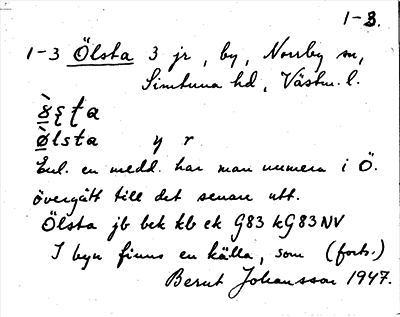 1-3.
1-3 Ölsta 3 jr, by, Norrby sn,
Simtuna hd, Västm. l.
Ølsta y r
Enl. en medd. har man numera i Ö.
övergått till det senare utt.
Ölsta jb bek kb ek G83 kG83NV
I byn finns en källa, som (forts.)
Bernt Johansson 1947.